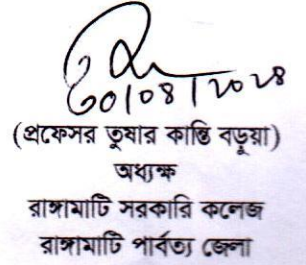 ৩০/০৪/২০২৪
(প্রফেসর তুষার কান্তি বড়ুয়া)
অধ্যক্ষ
রাঙ্গামাটি সরকারি কলেজ
রাঙ্গামাটি পার্বত্য জেলা